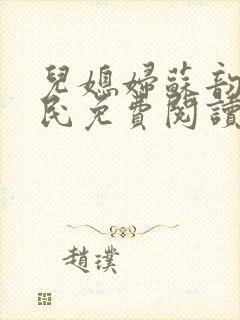 兒媳婦蘇韵
民免費閱讀
趙璞